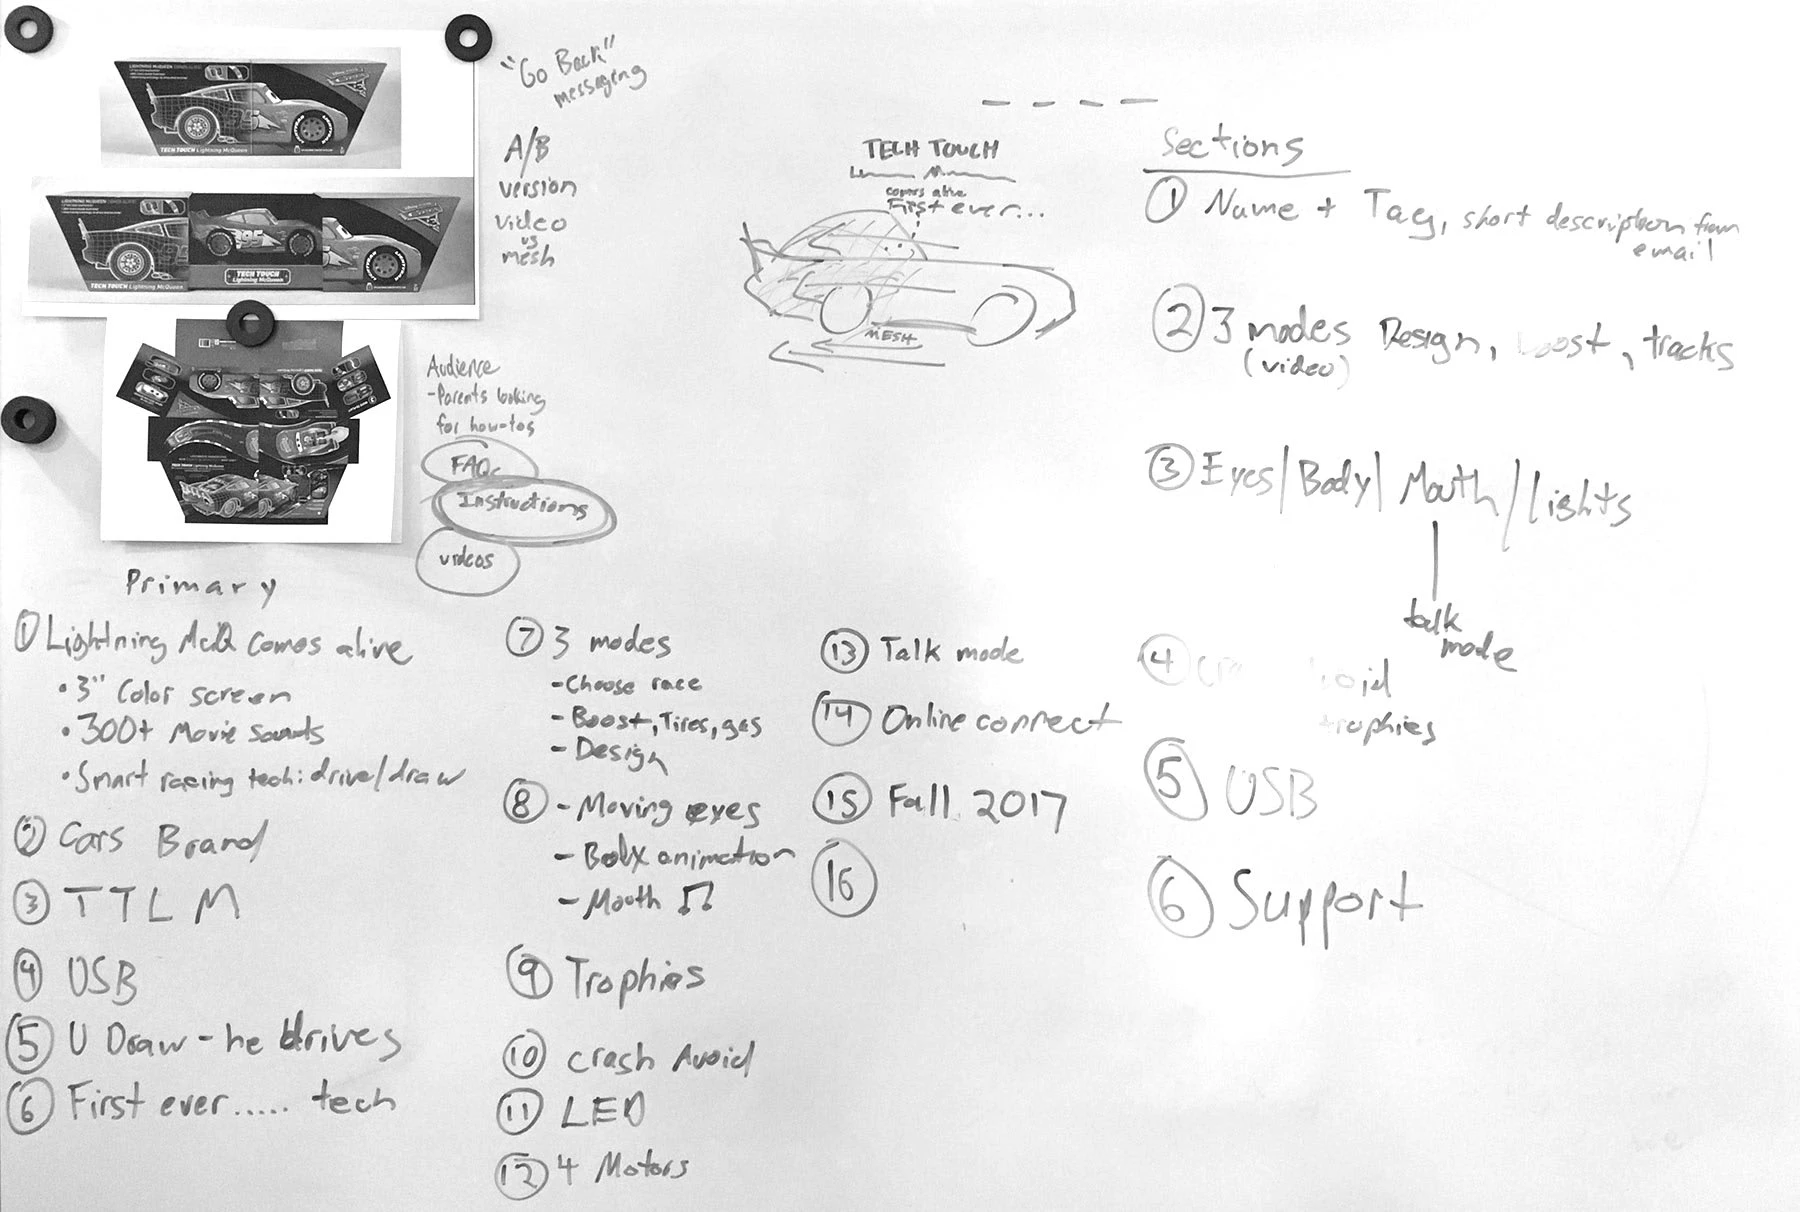 LIGHTNING McQUEEN
TECH TOUCH Lightning McQueen
LIGHTNING McQUEEN
95
TECH TOUCH
Lightning McQueen
TECH TOUCH Lightning McQueen
"Go Back"
messaging
A/B
version
video
vs
mesh
Audience
- Parents looking
for how-tos
FAQs
Instructions
videos
TECH TOUCH
L M
comes alive
First ever...
MESH
Primary
① Lightning McQ comes alive
• 3" Color screen
• 300+ Movie Sounds
• Smart racing tech: drive/draw
② Cars Brand
③ TTLM
④ USB
⑤ U Draw - he drives
⑥ First ever..... tech
⑦ 3 modes
- Choose race
- Boost, Tires, gas
- Design
⑧ - Moving eyes
- Body animation
- Mouth ♫
⑨ Trophies
⑩ Crash Avoid
⑪ LED
⑫ 4 Motors
⑬ Talk mode
⑭ Online connect
⑮ Fall 2017
⑯
Sections
① Name + Tag, short description from
email
② 3 modes Design, boost, tracks
(video)
③ Eyes/Body/Mouth/Lights
talk
mode
④
trophies
⑤ USB
⑥ Support